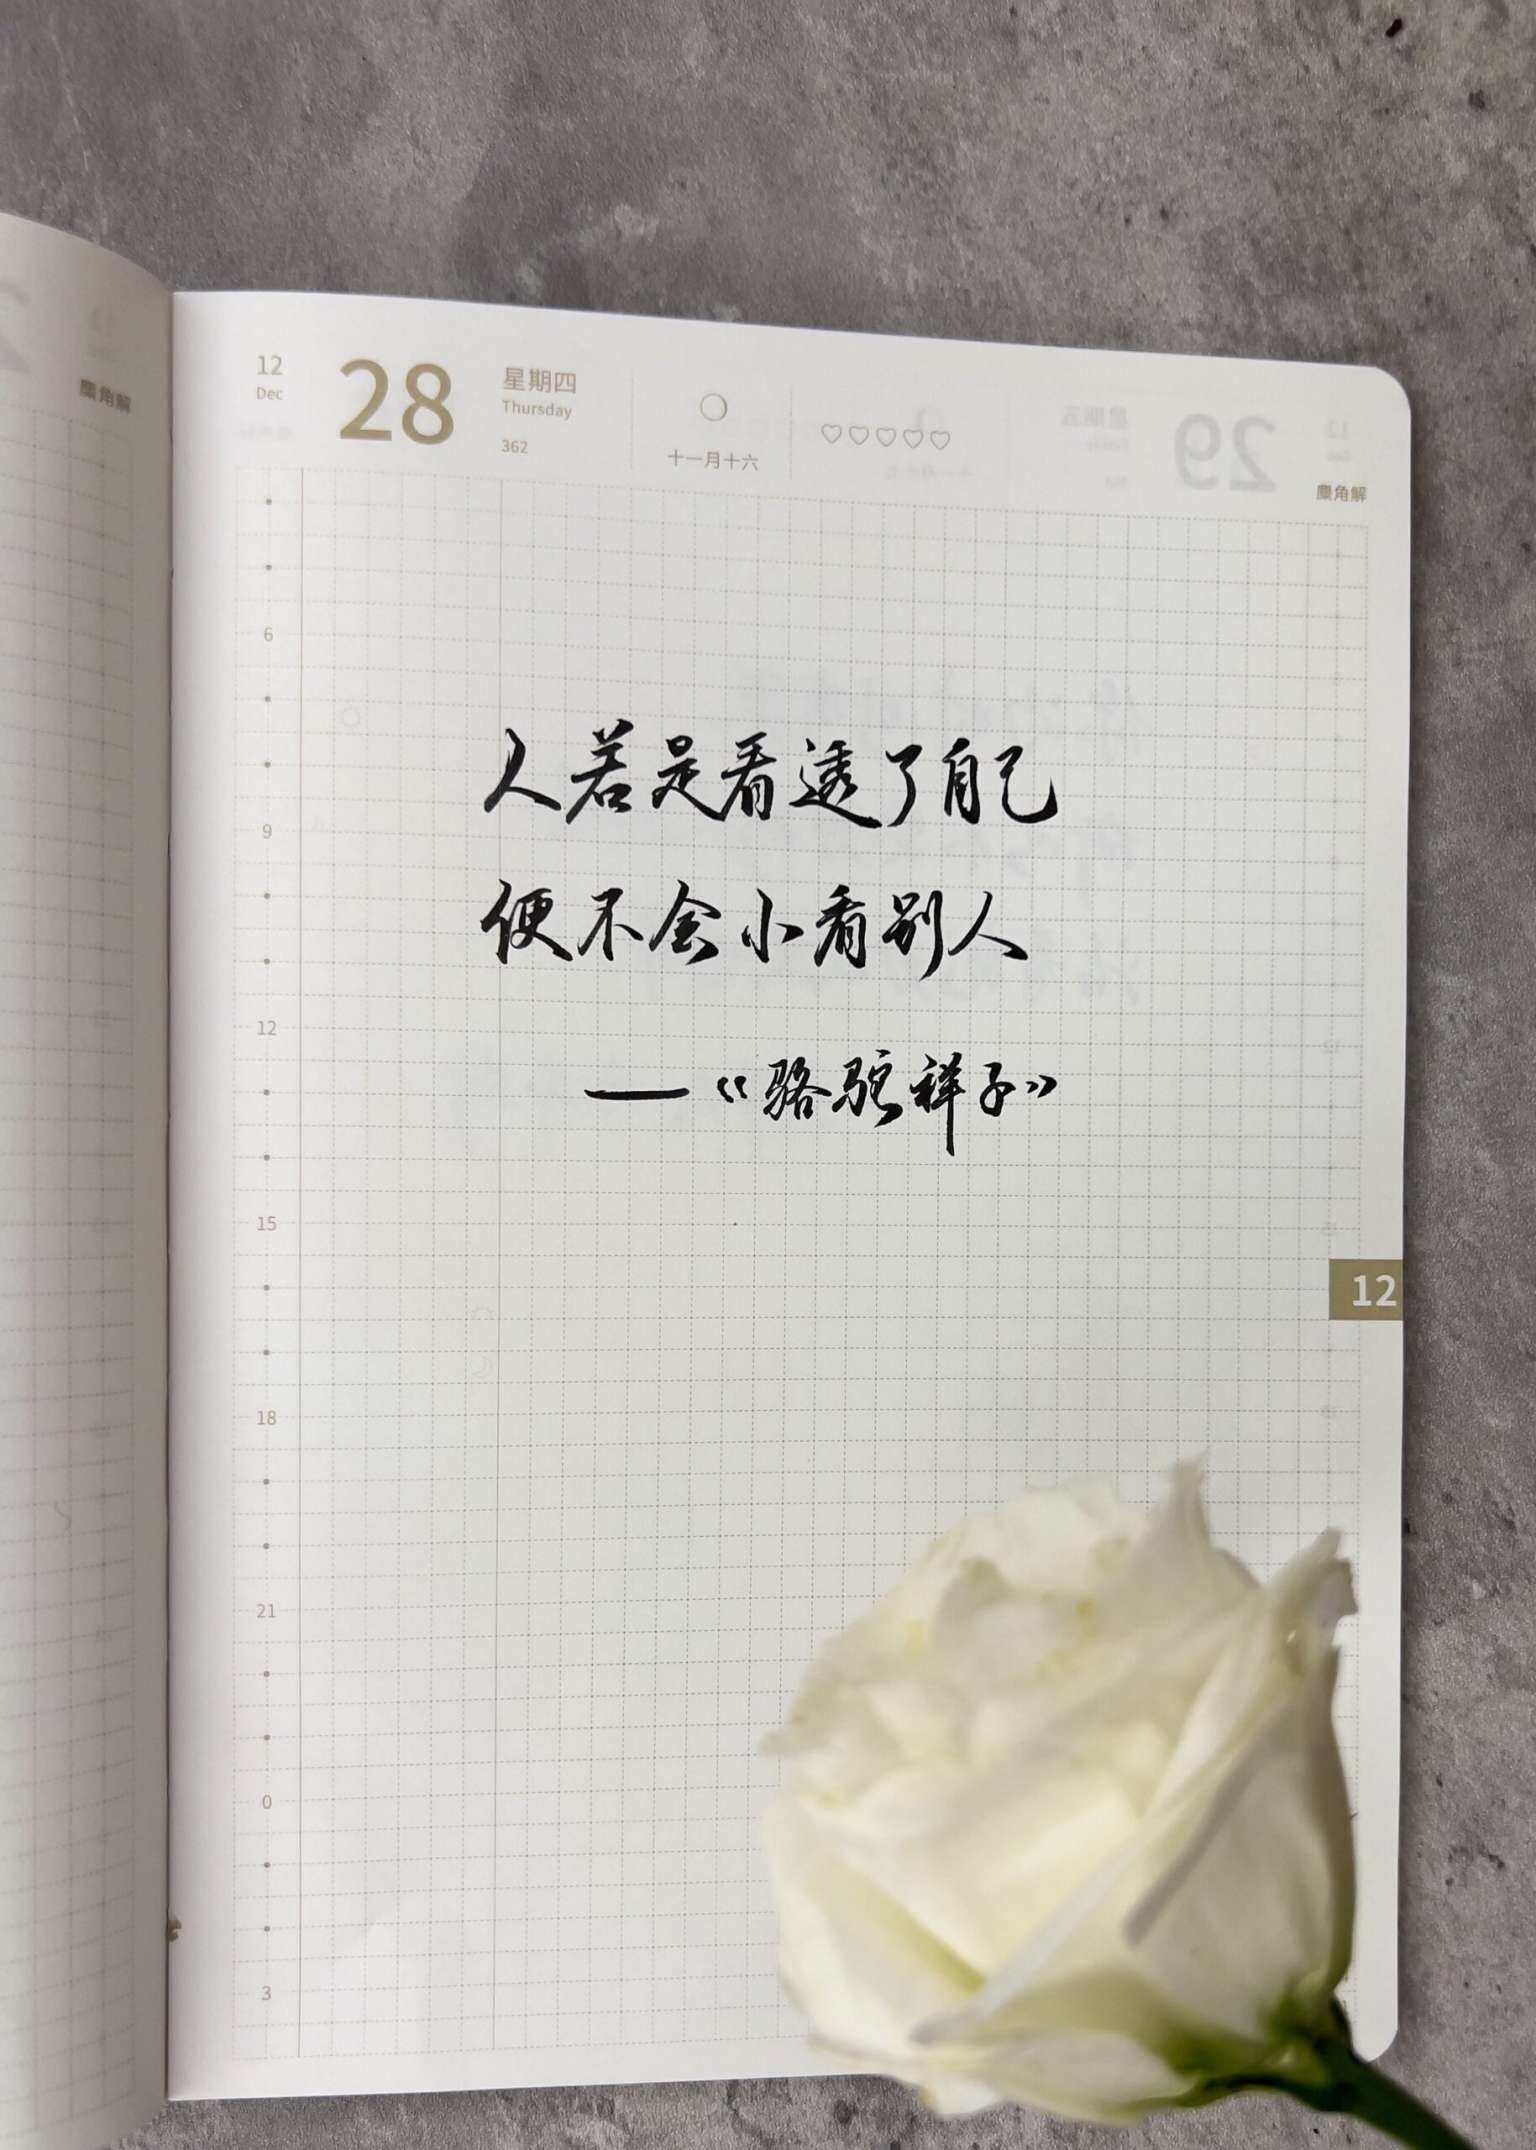 12
Dec
28
星期四
Thursday
362
十一月十六
麋角解
麋角解
人若是看透了自己
便不会小看别人
——《骆驼祥子》
6
9
12
15
18
21
0
3
12
29